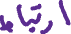 ارتباط